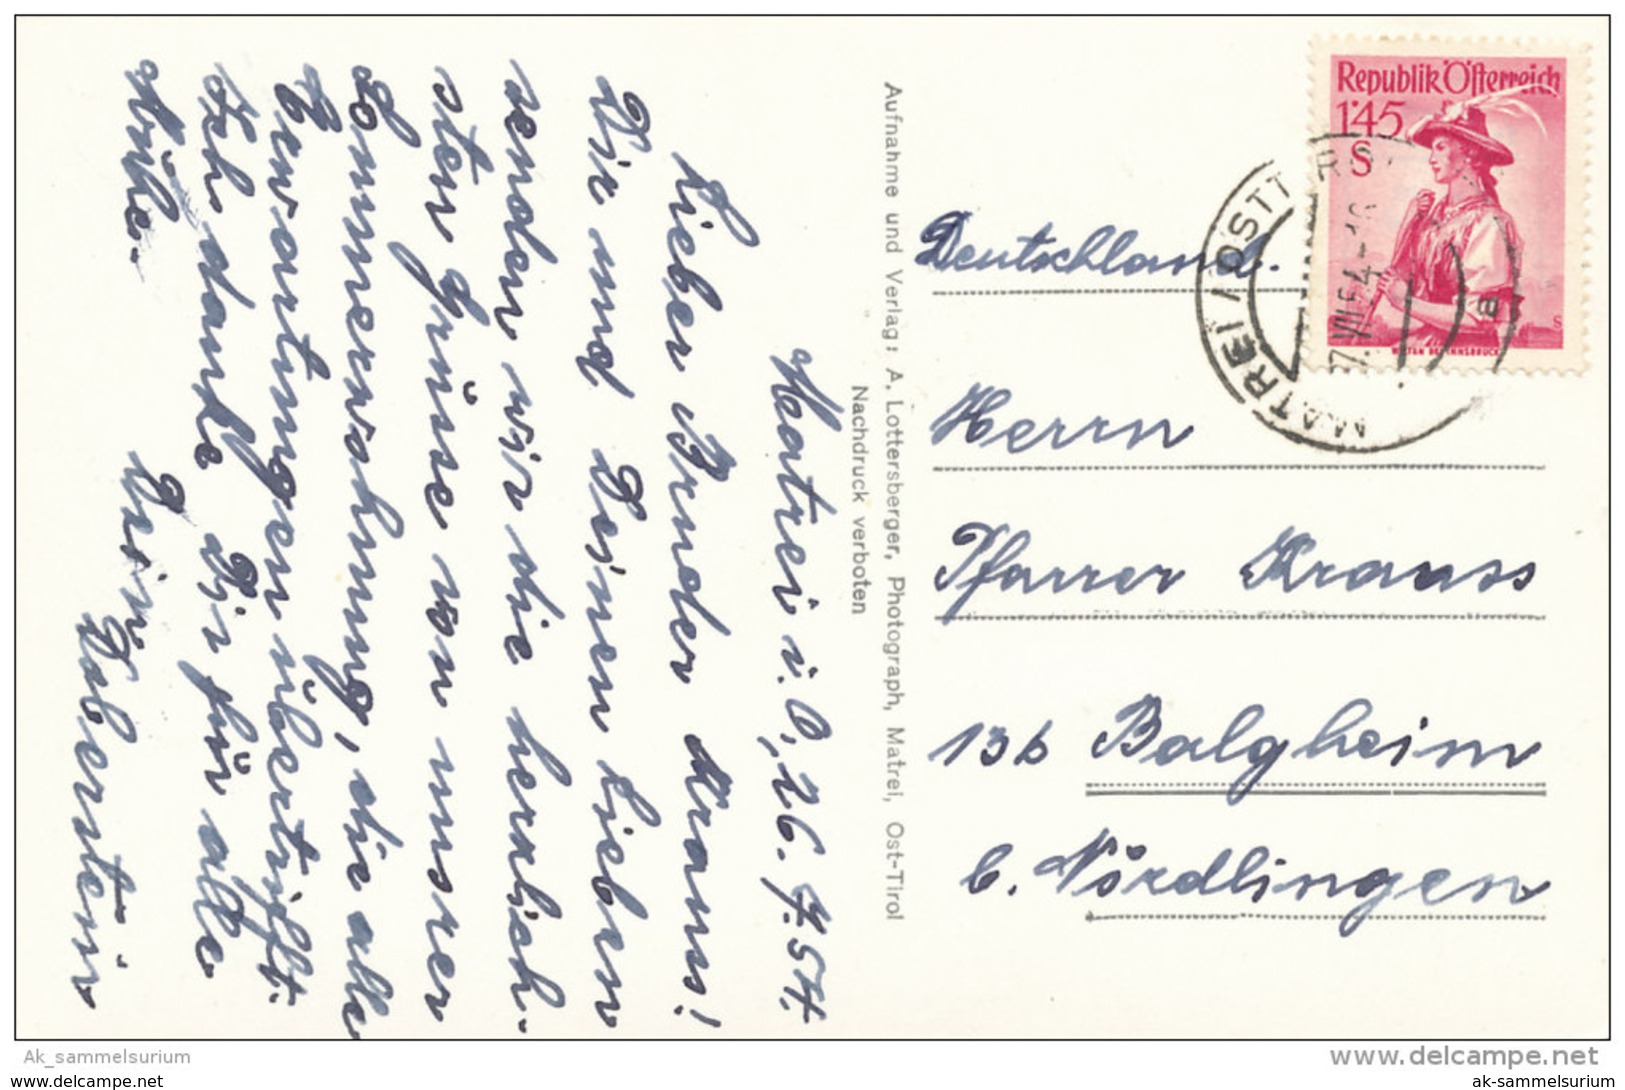 Matrei i. O., 26. 7. 54.
Lieber Bruder Kraus!
Dir und Deinen Lieben
senden wir die herzlich-
sten Grüsse von unserer
Sommerwohnung, die alle
Erwartungen übertrifft.
Ich danke Dir für alle
Mühe.
Dein
Aufnahme und Verlag: A. Lottersberger, Photograph, Matrei, Ost-Tirol
Nachdruck verboten
Republik Österreich
1.45
S
WILTEN BEI INNSBRUCK
MATREI I OSTTIROL
Deutschland.
Herrn
Pfarrer Krauss
13b Balgheim
b. Nördlingen
Ak_sammelsurium
www.delcampe.net
www.ak-sammelsurium.de
ak-sammelsurium